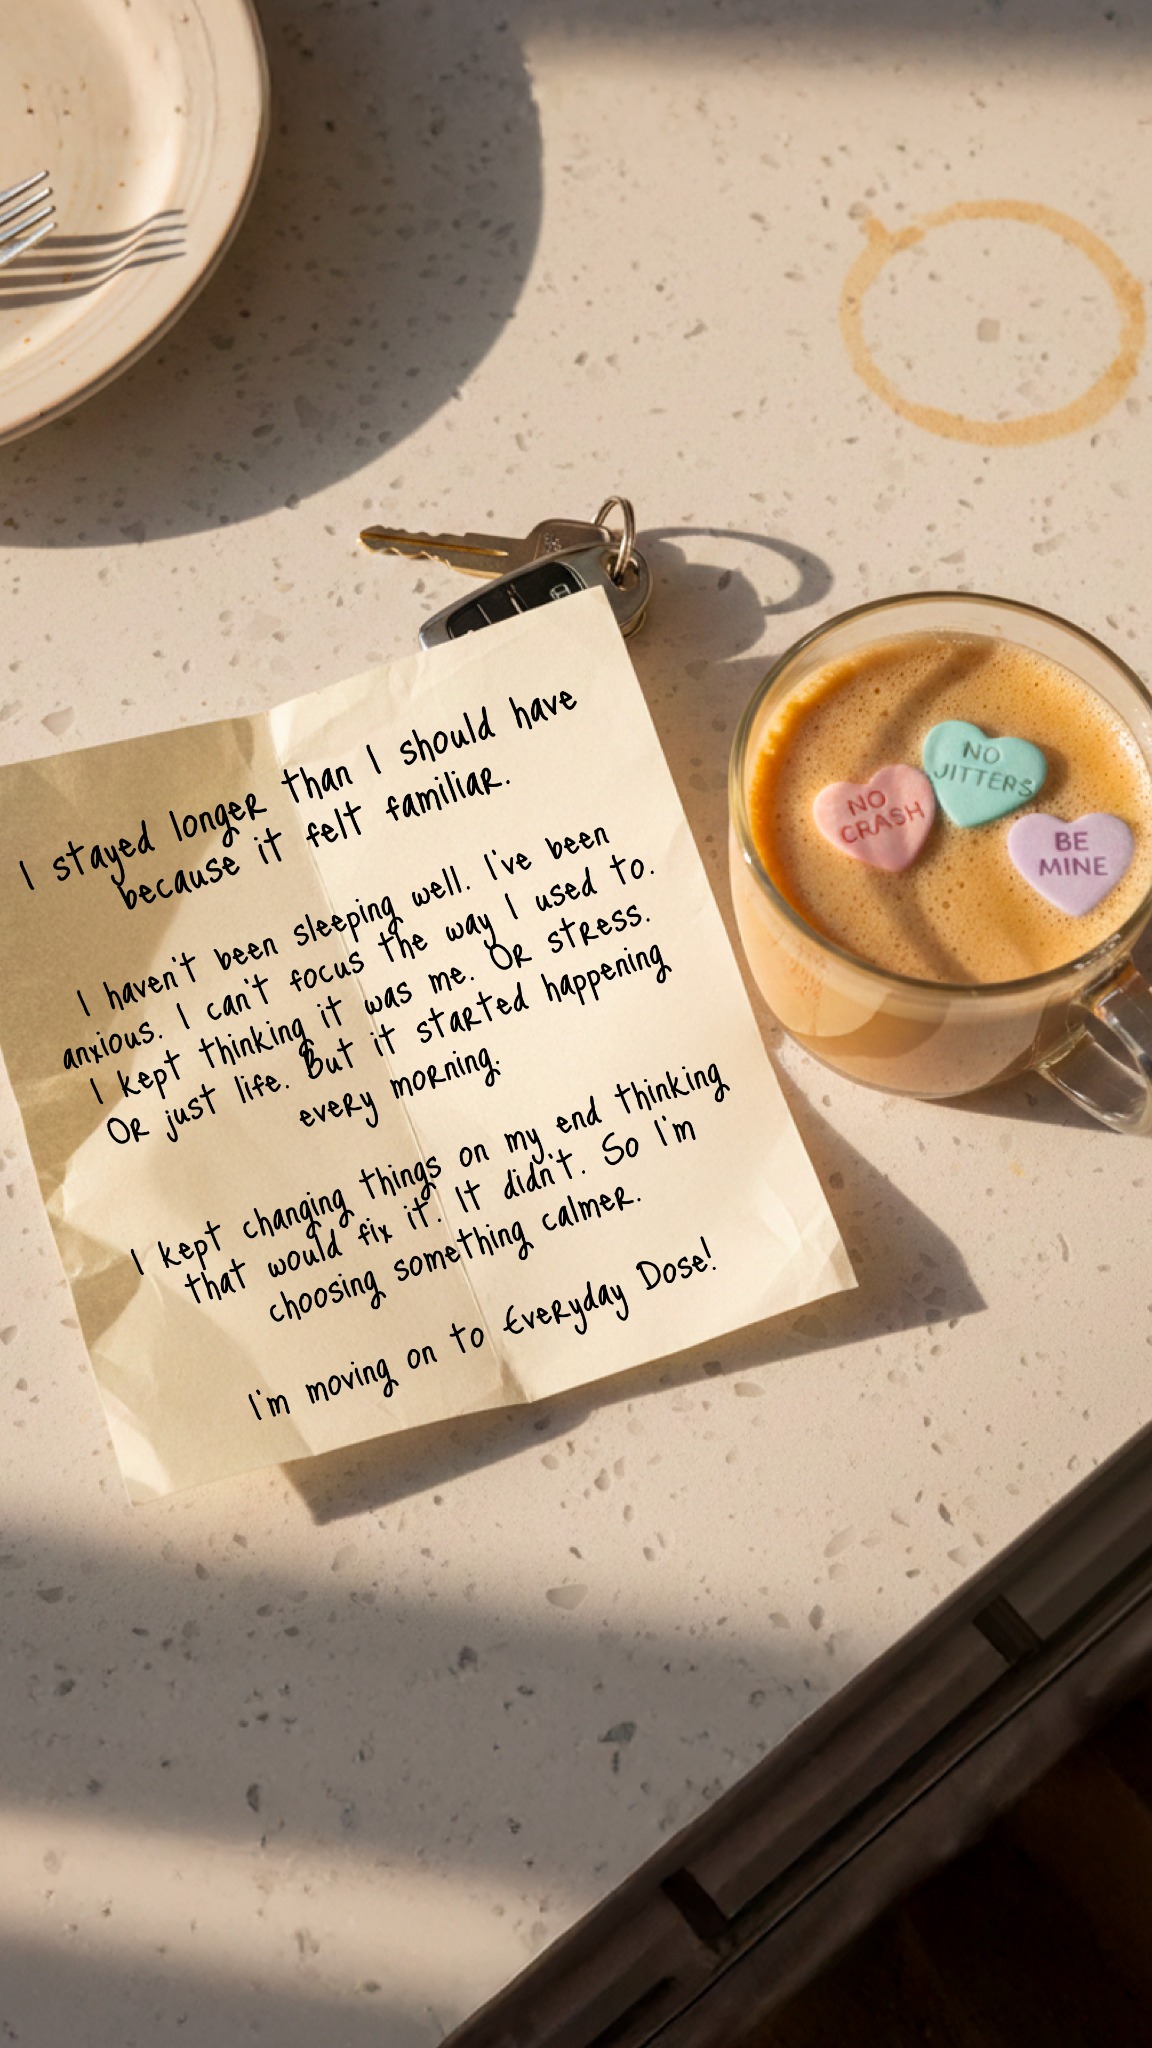 I stayed longer than I should have
because it felt familiar.
I haven't been sleeping well. I've been
anxious. I can't focus the way I used to.
I kept thinking it was me. Or stress.
Or just life. But it started happening
every morning.
I kept changing things on my end thinking
that would fix it. It didn't. So I'm
choosing something calmer.
I'm moving on to Everyday Dose!
NO
JITTERS
NO
CRASH
BE
MINE